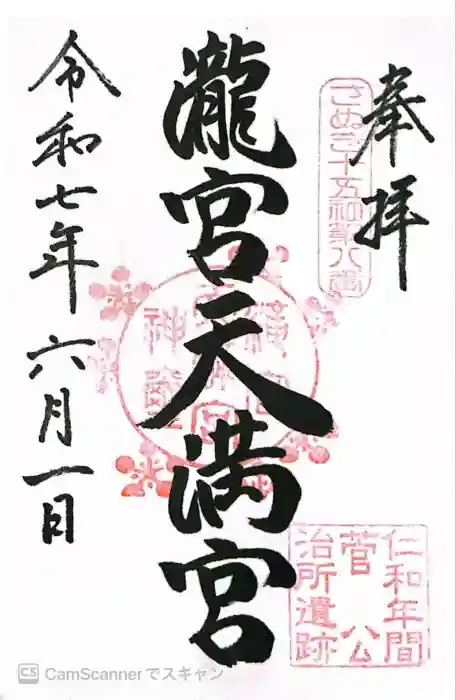 奉拝
さぬき十五社第八番
瀧宮天満宮
令和七年六月一日
仁和年間
菅公
治所遺跡
CS CamScannerでスキャン